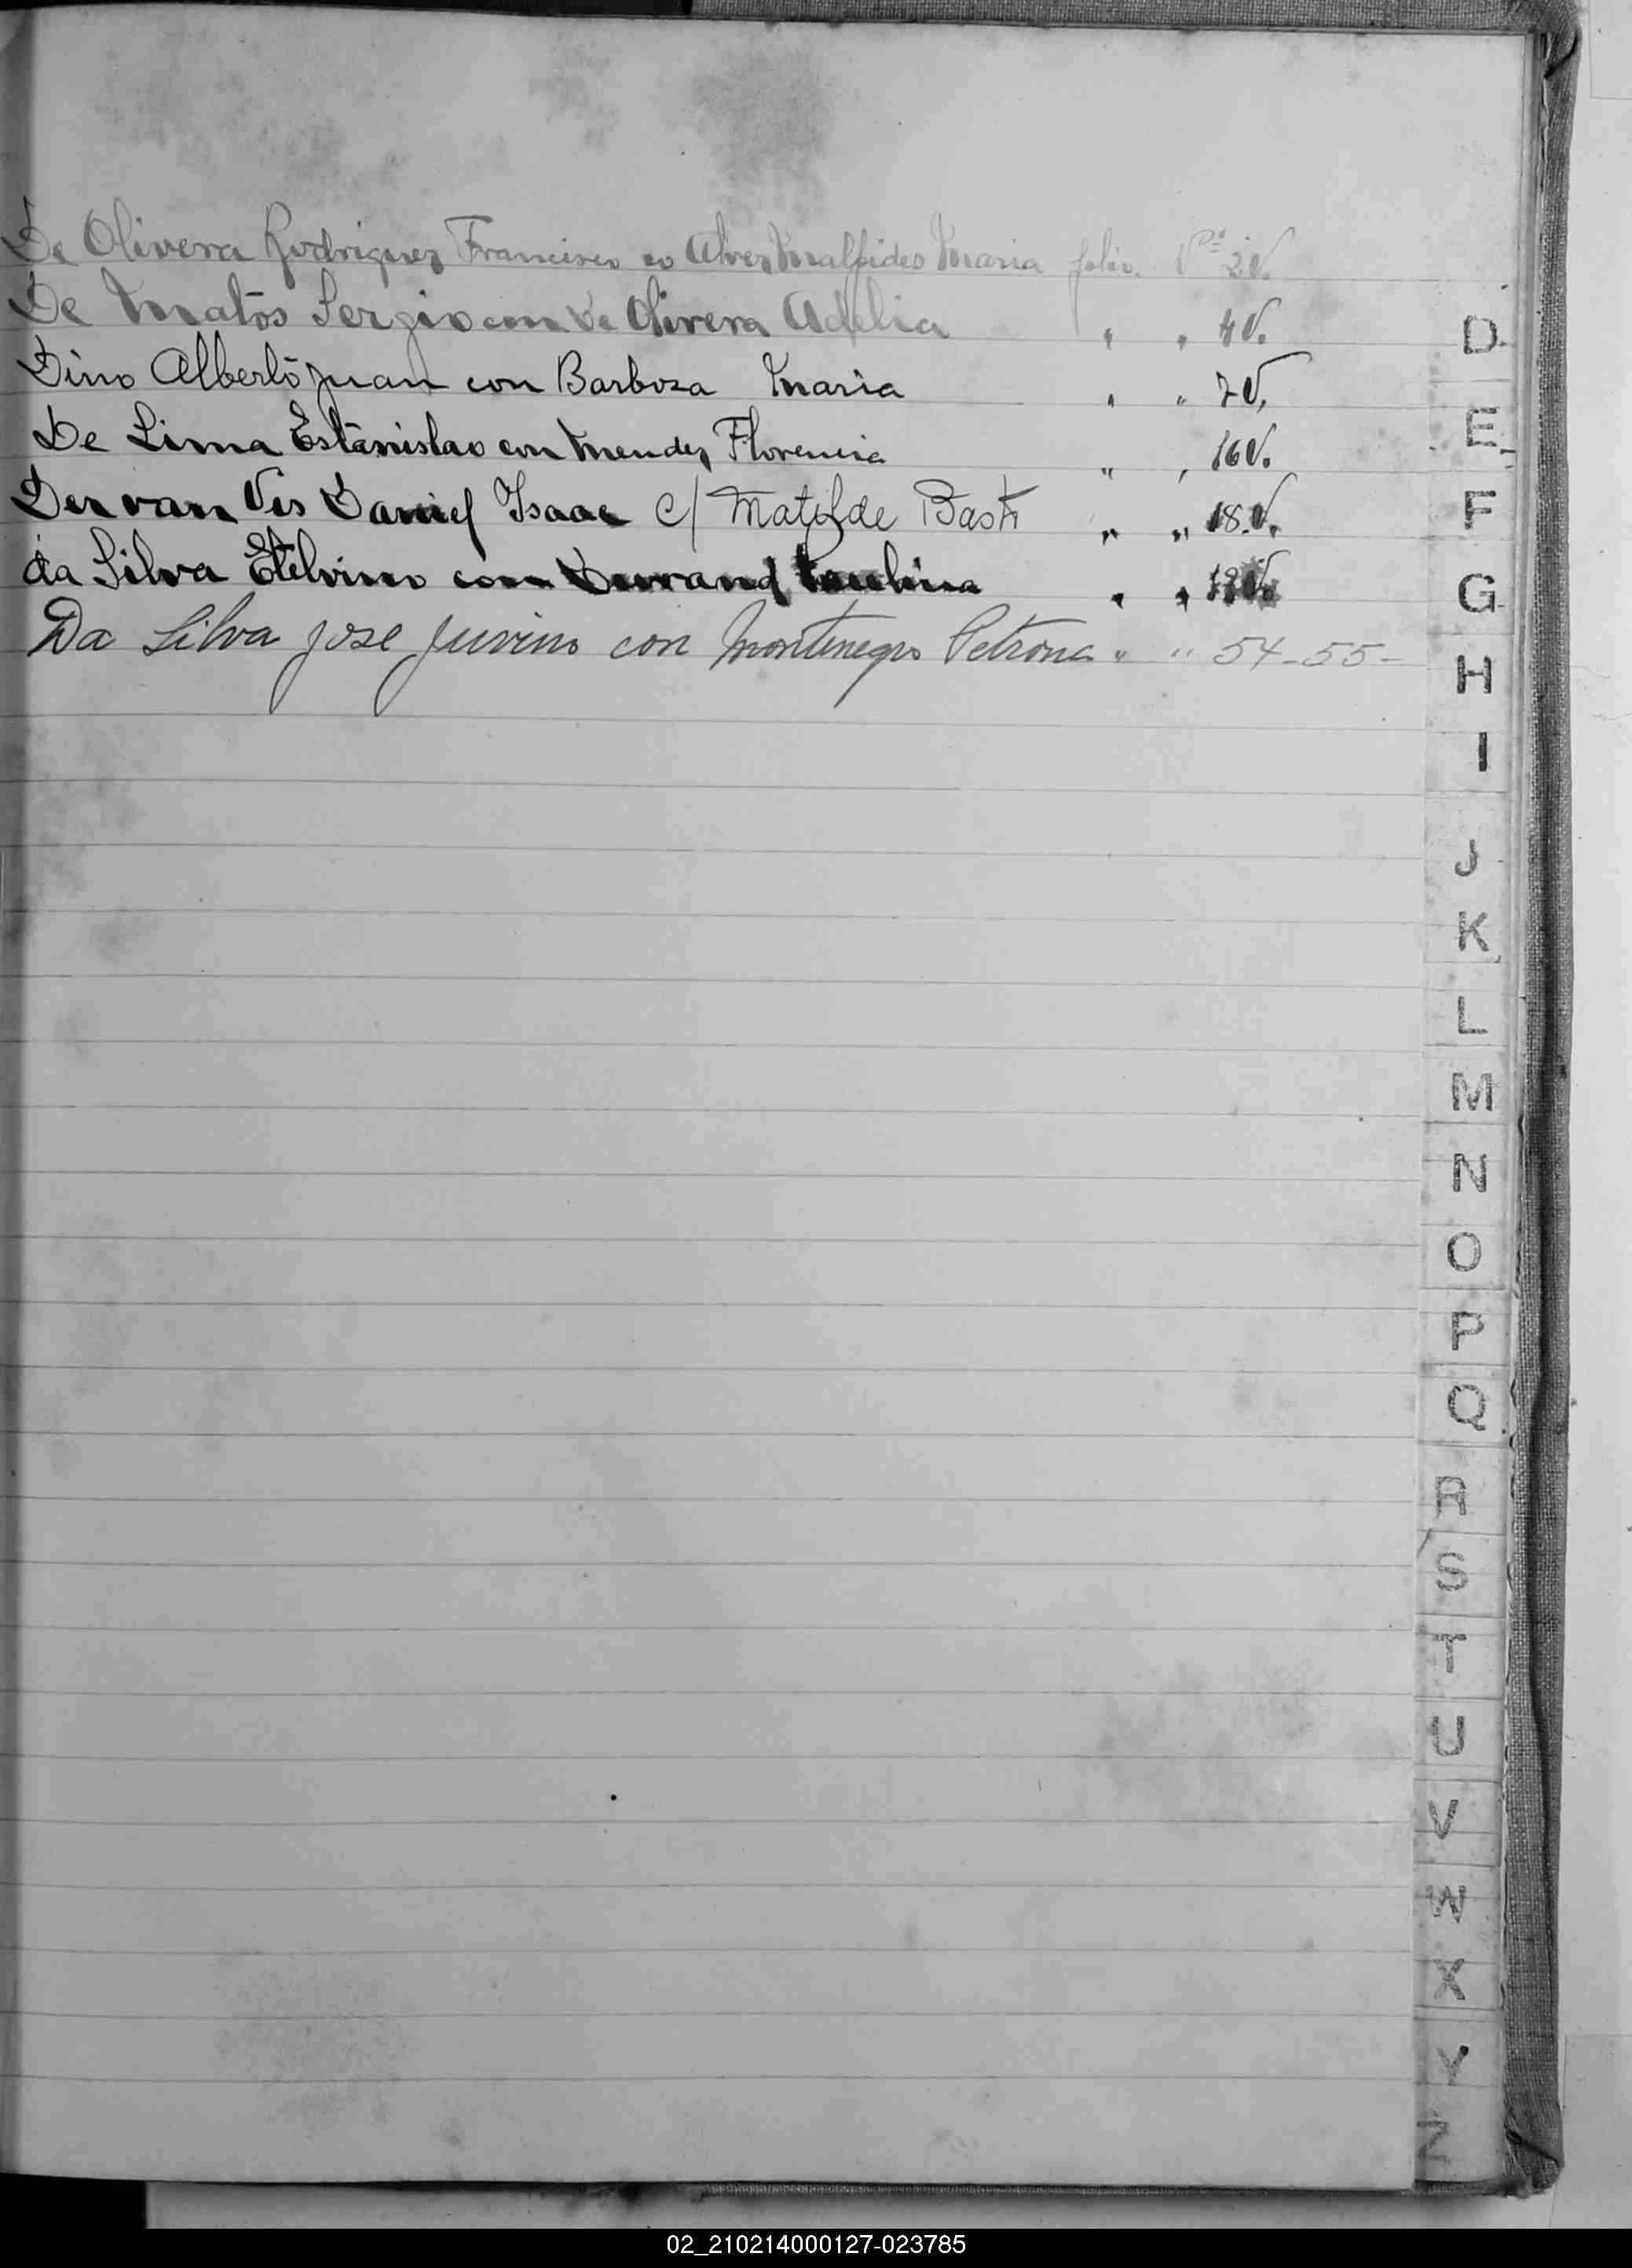 De Olivera Rodriguez Francisco co Alvez Malfides Maria folio. Nº 2V.
De Matos Sergio con de Olivera Adelia " " 4V.
Dino Alberto Juan con Barboza Maria " " 7V.
De Lima Estanislao con Mendez Florencia " " 16V.
Der van Ves Daniel Isaac c/ Matilde Basti " " 18.V.
da Silva Etelvino con Durand Paulina " " 19V.
Da Silva Jose Juvino con Montenegro Petrona " " 54-55-
D
E
F
G
H
I
J
K
L
M
N
O
P
Q
R
S
T
U
V
W
X
Y
Z
02_210214000127-023785